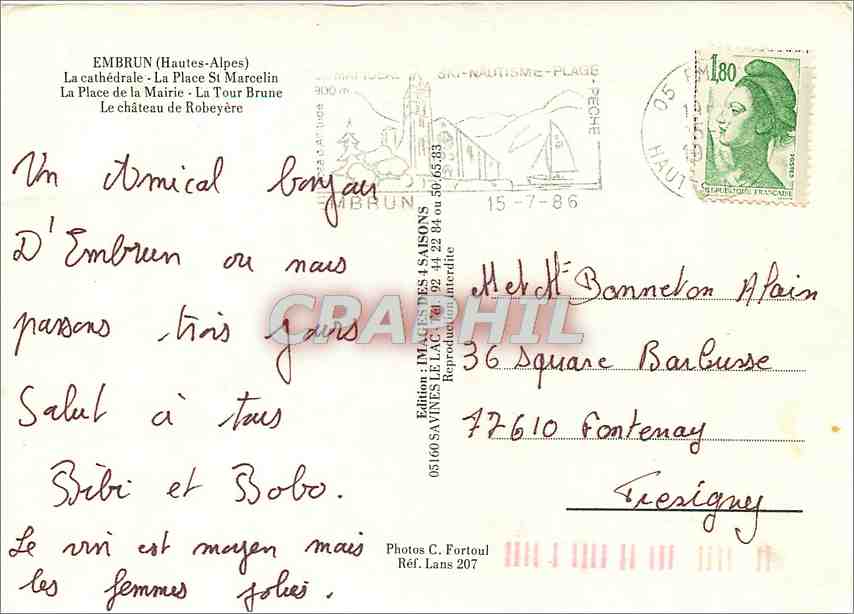 EMBRUN (Hautes-Alpes)
La cathédrale - La Place St Marcelin
La Place de la Mairie - La Tour Brune
Le château de Robeyère
Un Amical bonjour
D'Embrun ou nous
passons trois jours
Salut à tous
Bibi et Bobo.
Le vin est moyen mais
les femmes jolies.
SKI-NAUTISME-PLAGE
-PECHE
900 m
EMBRUN 15-7-86
05
HAUT
1,80
POSTES
REPUBLIQUE FRANÇAISE
Edition : IMAGES DES 4 SAISONS
05160 SAVINES LE LAC - Tél. 92 44 22 84 ou 50.65.83
Reproduction interdite
CRAPHIL
M et Me Bonneton Alain
36 square Barbusse
77610 Fontenay
Tresigny
Photos C. Fortoul
Réf. Lans 207